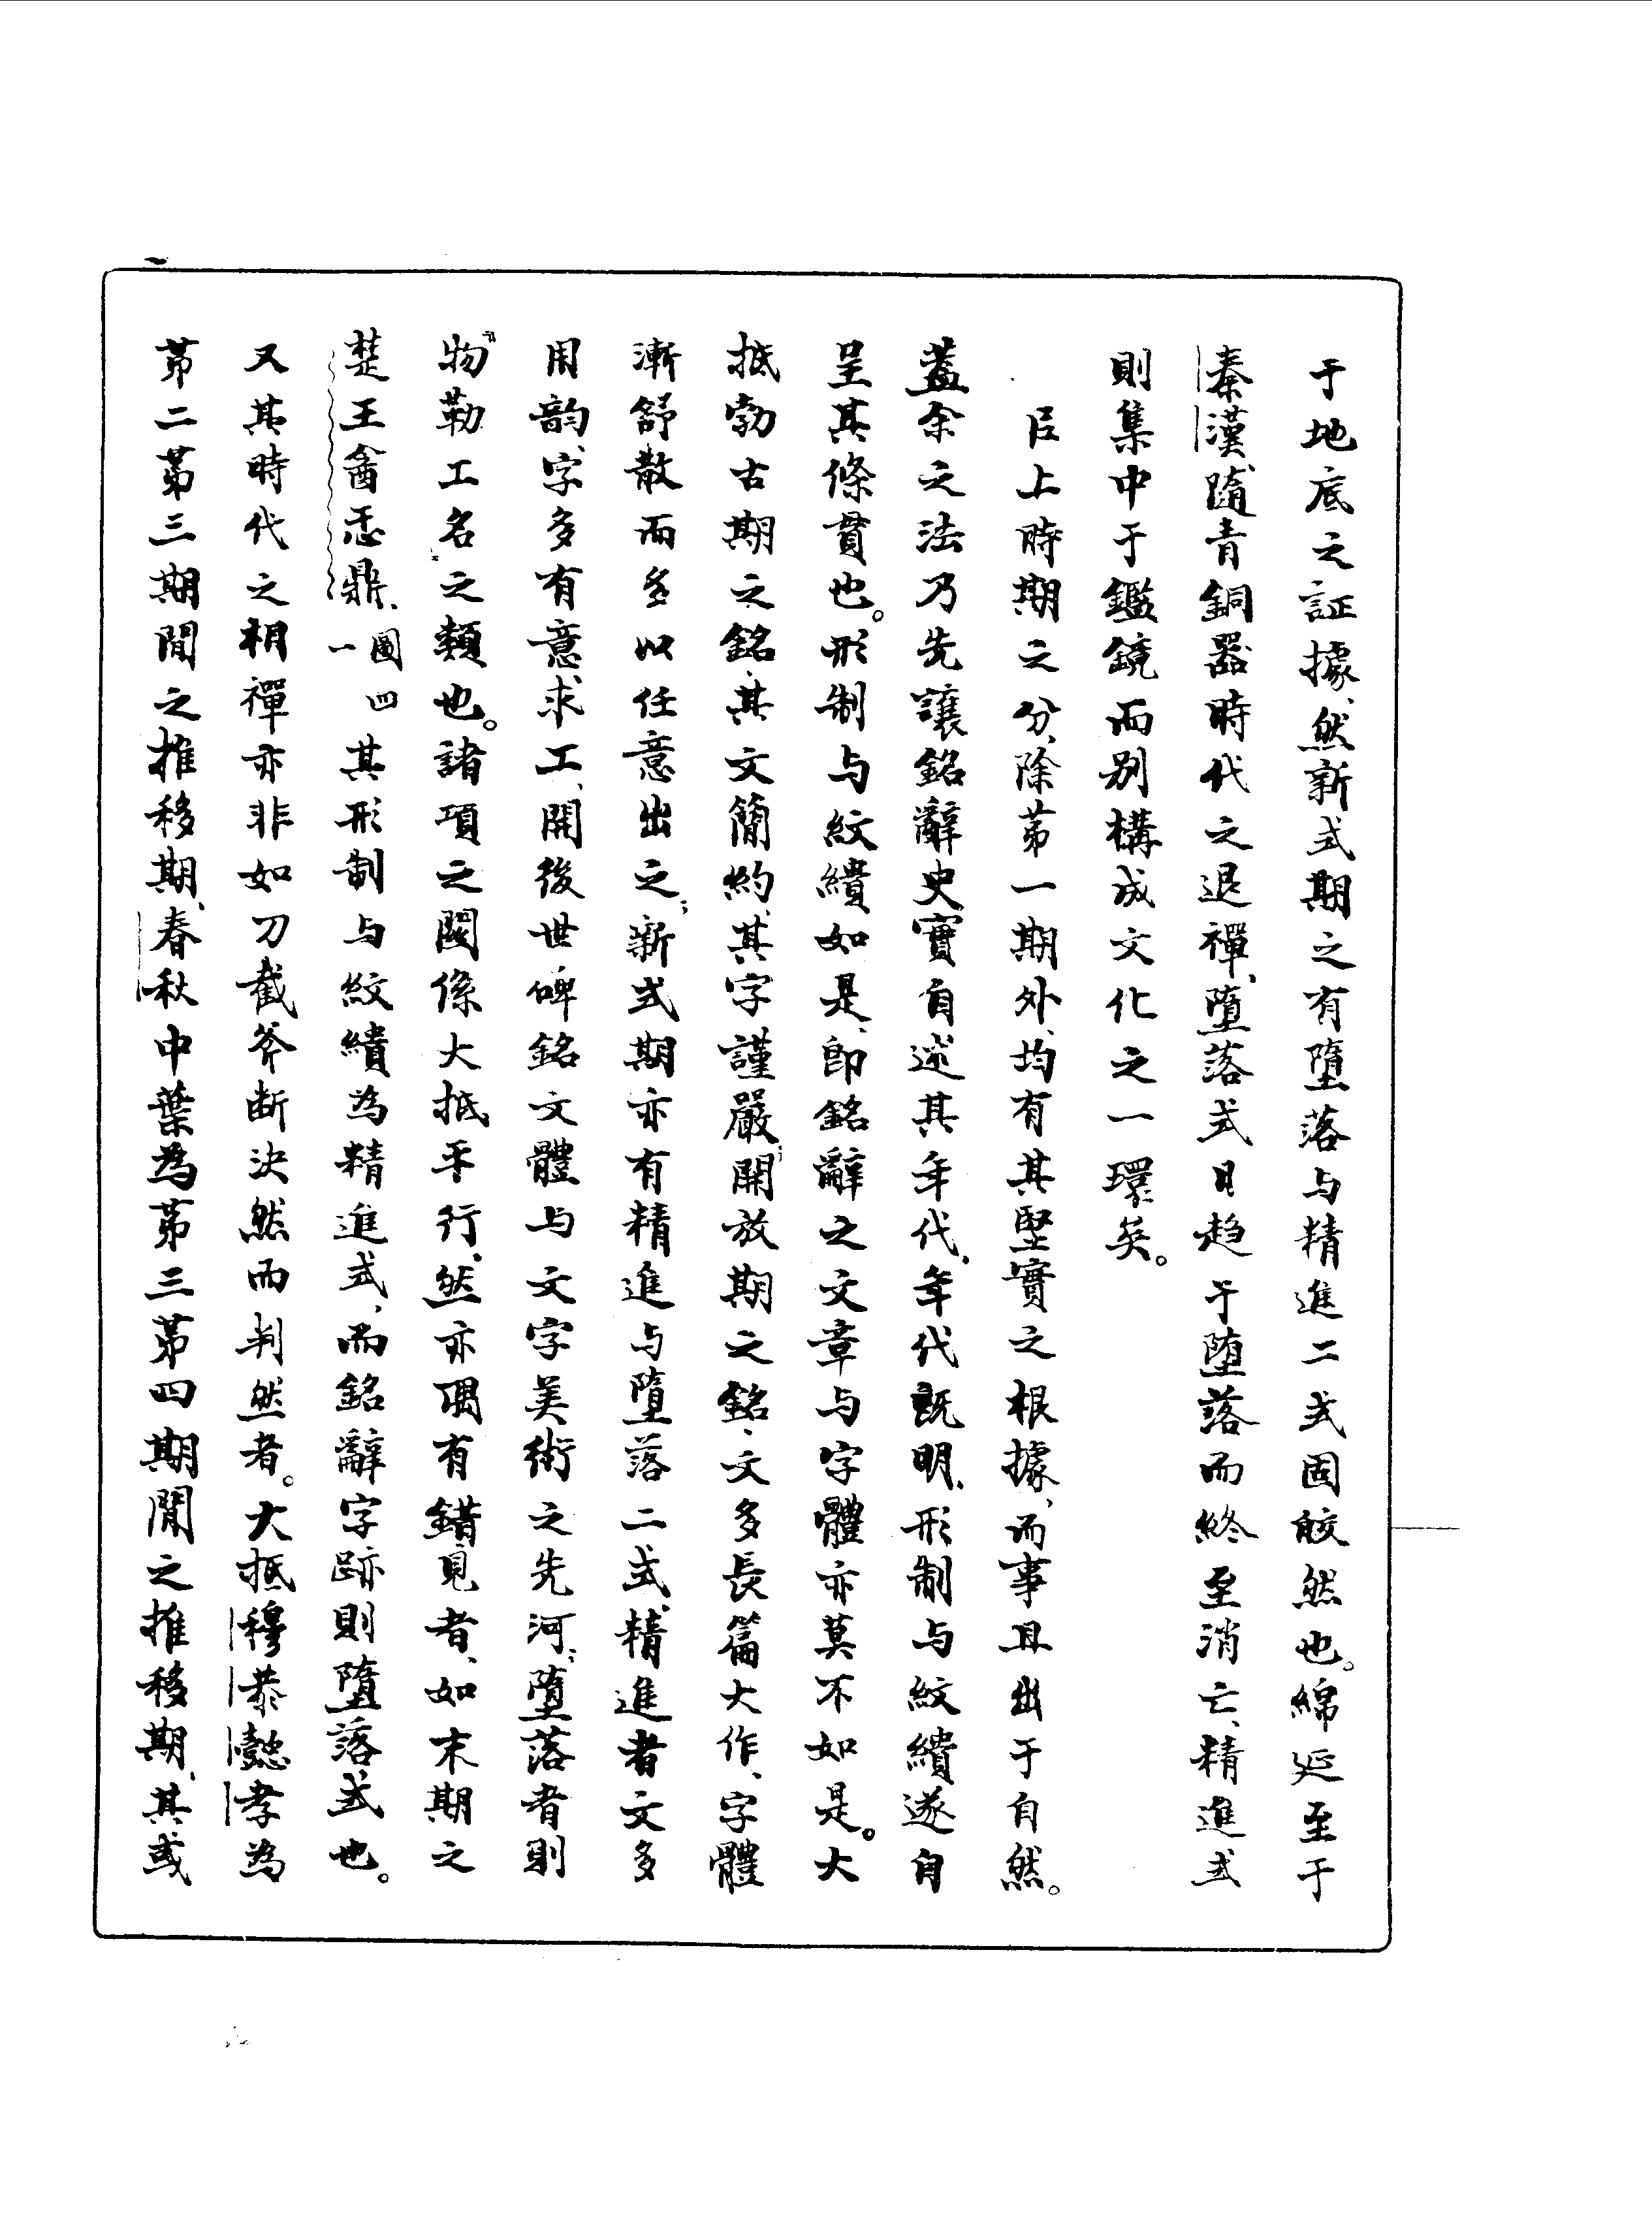 于地底之証據、然新式期之有墮落与精進二式固皎然也。綿延至于
秦漢、隨青銅器時代之退禪、墮落式日趋于墮落而終至消亡、精進式
則集中于鑑鏡而別構成文化之一環矣。
㠯上時期之分、除苐一期外、均有其堅實之根據、而事且出于自然。
蓋余之法乃先讓銘辭史實自述其年代、年代既明、形制与紋繢遂自
呈其條貫也。形制与紋繢如是、即銘辭之文章与字體亦莫不如是。大
抵勃古期之銘、其文簡約、其字謹嚴；開放期之銘、文多長篇大作、字體
漸舒散而多以任意出之；新式期亦有精進与墮落二式、精進者文多
用韵、字多有意求工、開後世碑銘文體与文字美術之先河；墮落者則
“物勒工名”之類也。諸項之関係大抵平行、然亦偶有錯見者、如末期之
楚王酓忎鼎、圖一四其形制与紋繢為精進式、而銘辭字跡則墮落式也。
又其時代之相禪亦非如刀截斧断決然而判然者。大抵穆恭懿孝為
苐二苐三期間之推移期、春秋中葉為苐三苐四期間之推移期、其或